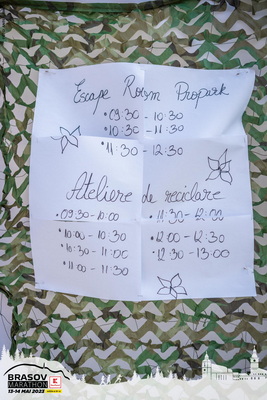 Escape Room Propark
• 09:30 - 10:30
• 10:30 - 11:30
• 11:30 - 12:30
Ateliere de reciclare
• 09:30 - 10:00
• 10:00 - 10:30
• 10:30 - 11:00
• 11:00 - 11:30
• 11:30 - 12:00
• 12:00 - 12:30
• 12:30 - 13:00
BRASOV
MARATHON
13-14 MAI 2023